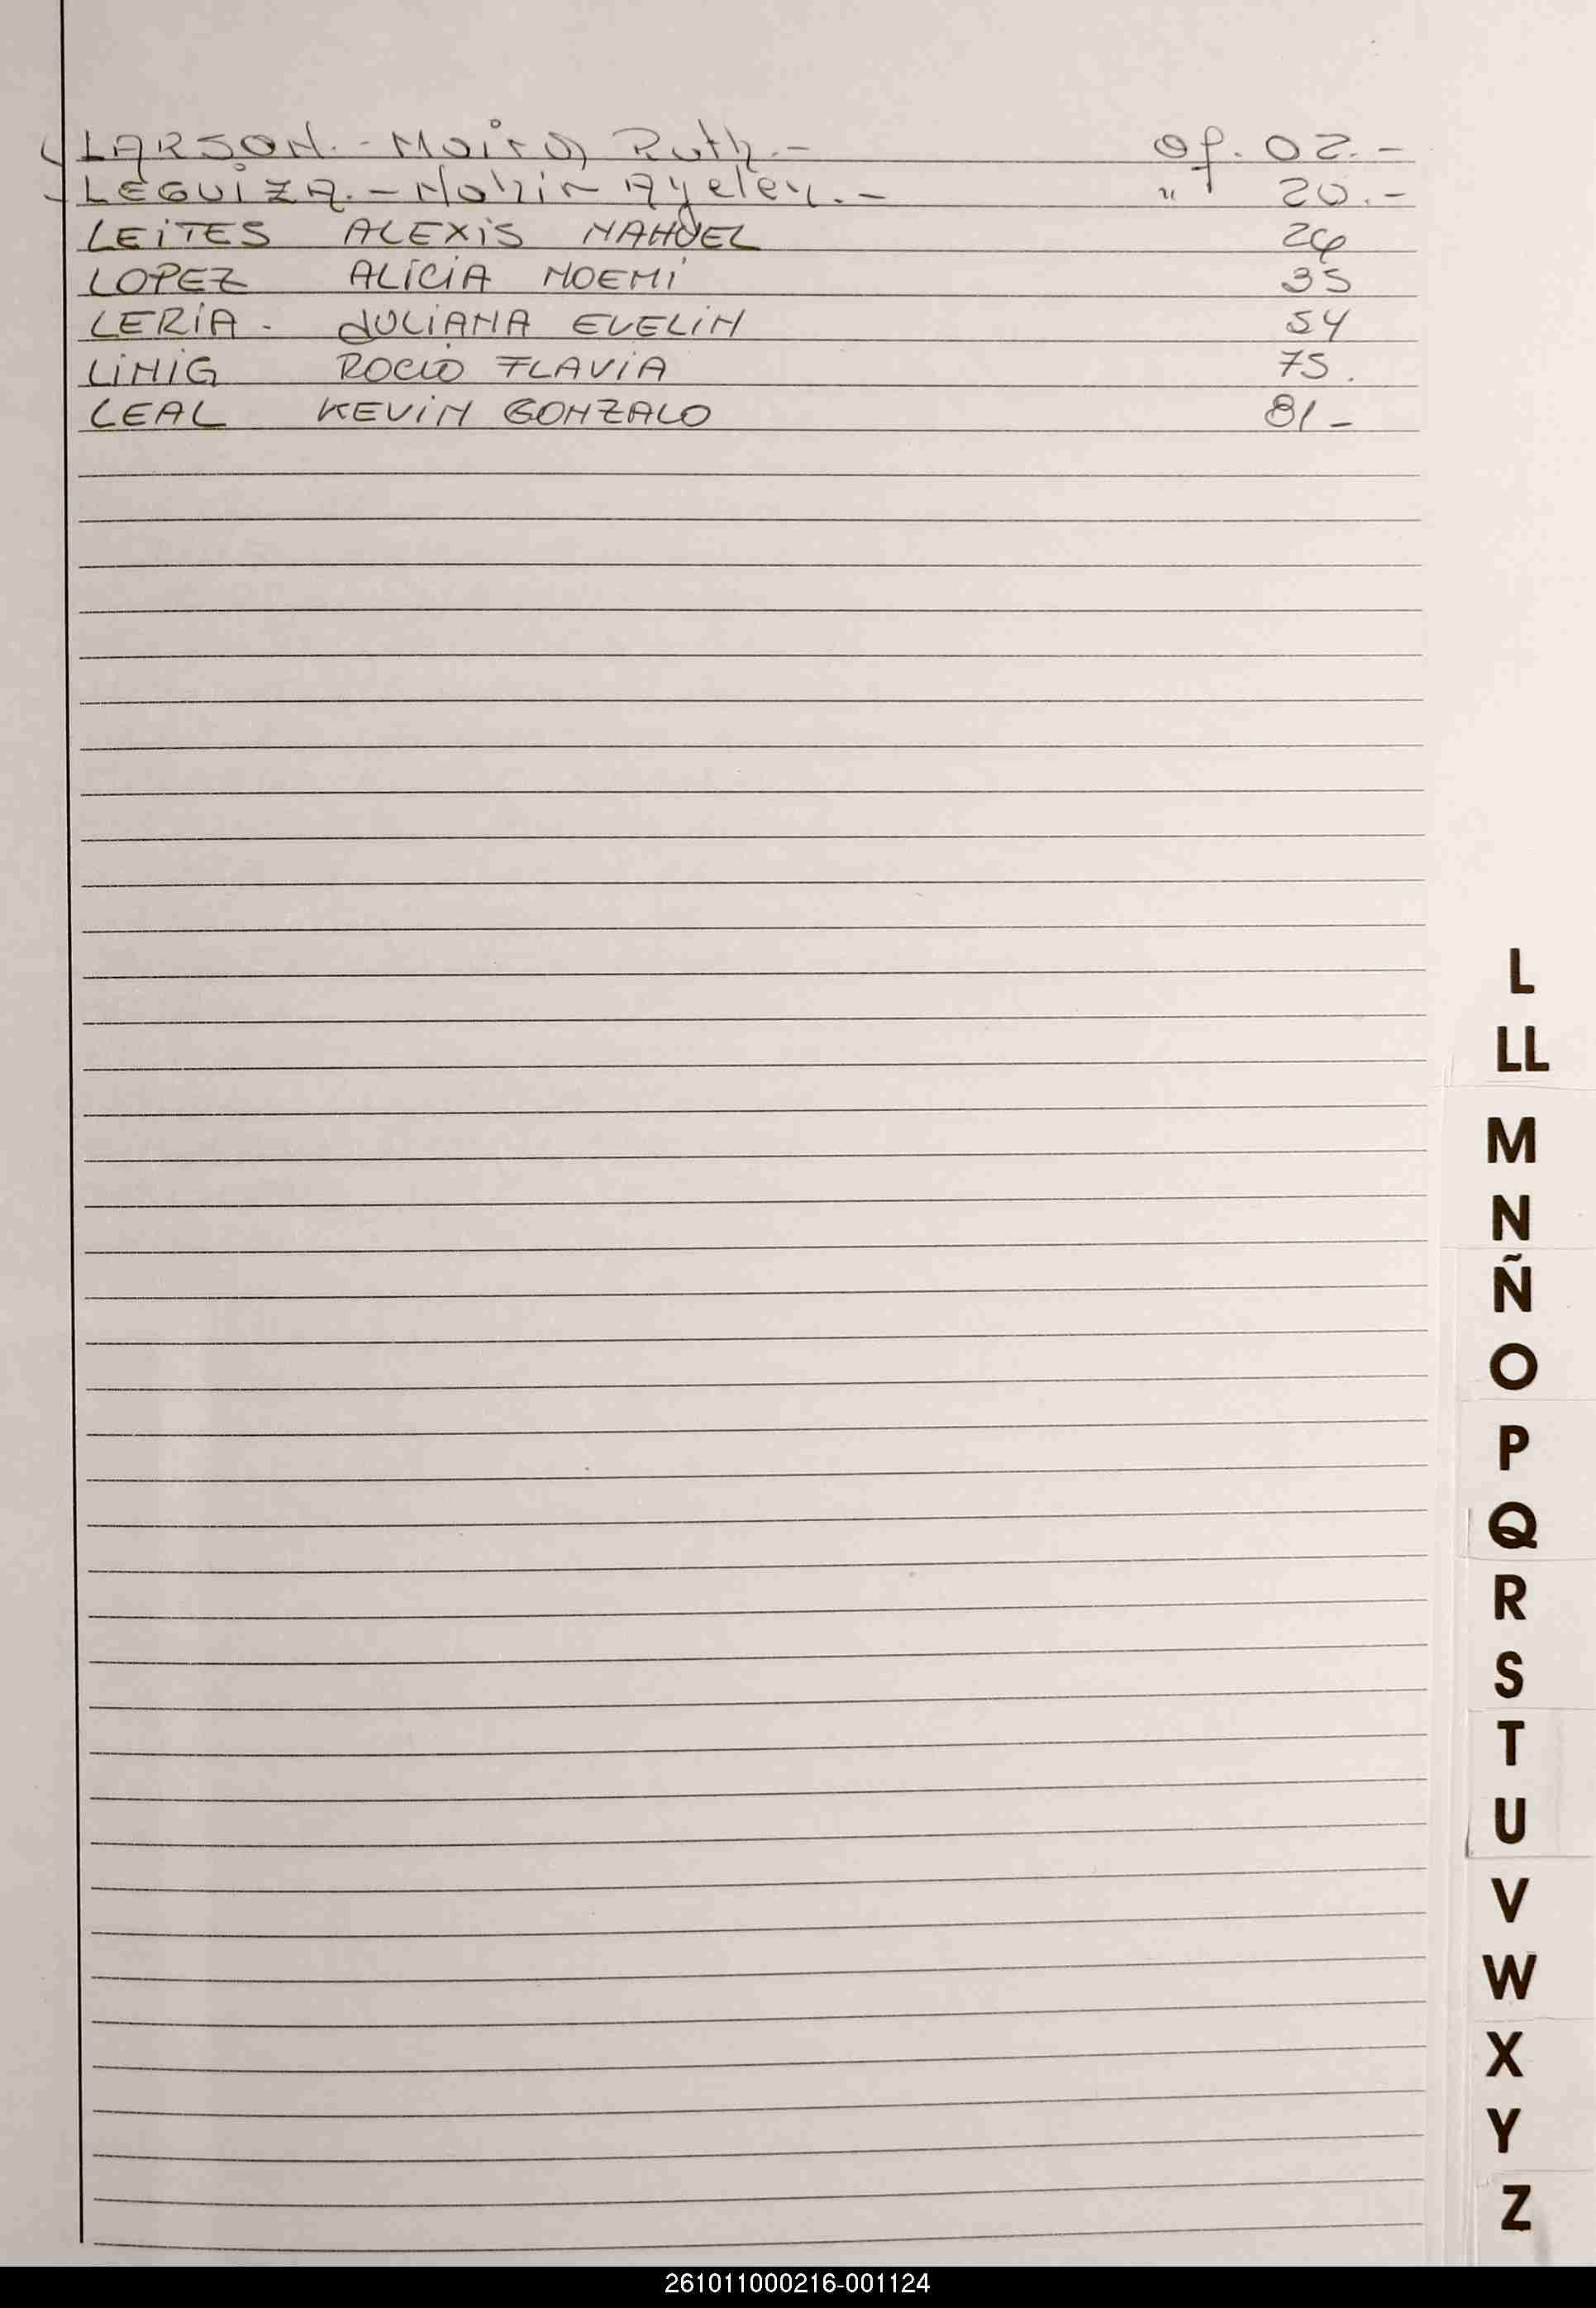 LARSON.- Maira Ruth.- of. 02.-
LEGUIZA.- Ayelen.- " 20.-
LEITES ALEXIS NAHUEL
LOPEZ ALICIA NOEMI 35
LERIA - JULIANA EVELIN 54
LINIG ROCIO FLAVIA 75.
LEAL KEVIN GONZALO 81-
L
LL
M
N
Ñ
O
P
Q
R
S
T
U
V
W
X
Y
Z
261011000216-001124